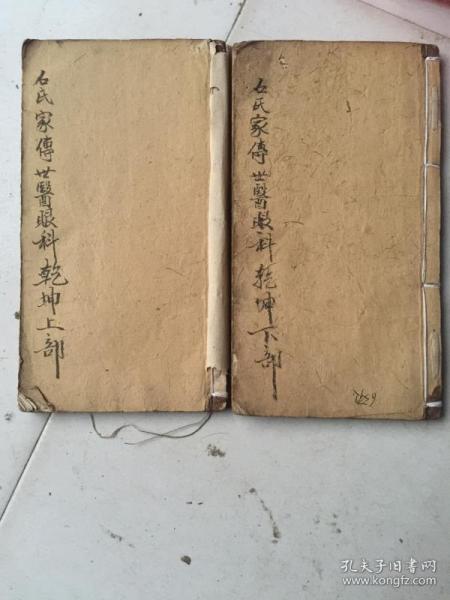 石氏家傳世醫眼科乾坤上部
石氏家傳世醫眼科乾坤下部
孔夫子旧书网
www.kongfz.com